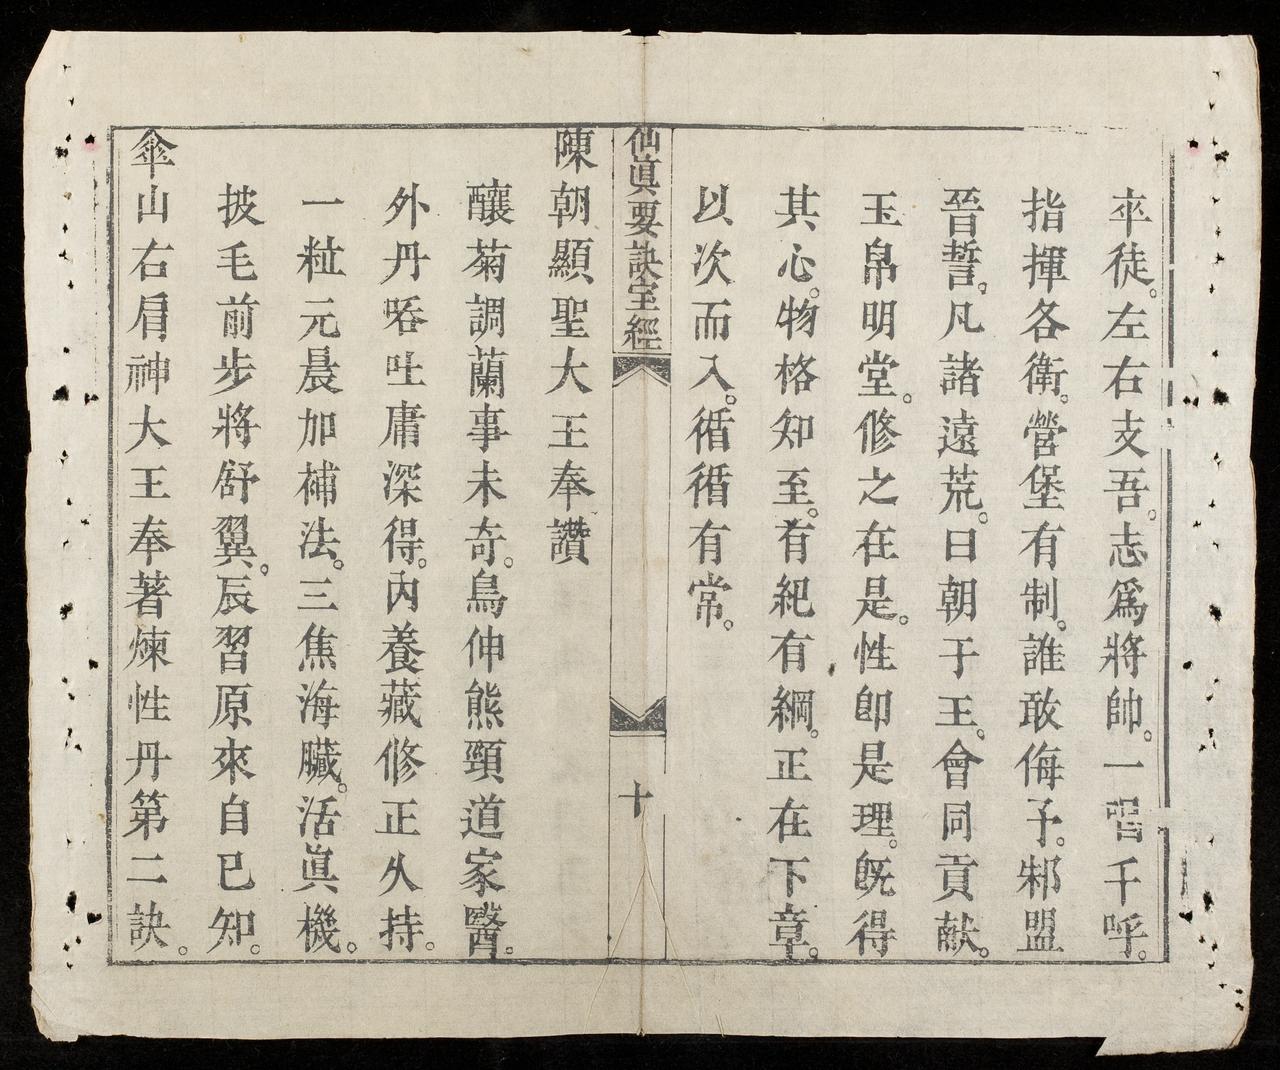 卒徒。左右支吾。志爲將帥。一唱千呼。
指揮各衛。營堡有制。誰敢侮予。邾盟
晉誓。凡諸遠荒。曰朝于王。會同貢献。
玉帛明堂。修之在是。性卽是理。旣得
其心。物格知至。有紀有綱。正在下章。
以次而入。循循有常。
仙眞要訣宝經
十
陳朝顯聖大王奉讚
釀菊調蘭事未奇。鳥伸熊頸道家醫。
外丹吞吐庸深得。內養藏修正久持。
一粒元晨加補法。三焦海臟。活眞機。
披毛前步將舒翼。辰習原來自已知。
傘山右肩神大王奉著煉性丹第二訣。